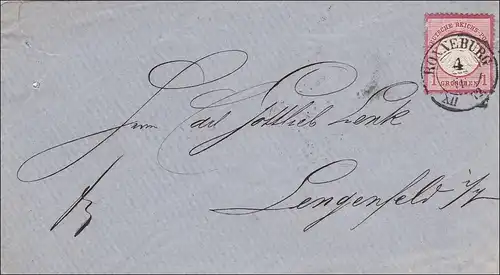 DEUTSCHE REICHS-POST
1 GROSCHEN 1
RONNEBURG
4
XII
Herrn Carl Gottlieb Lenk
Lengenfeld i/V
fr